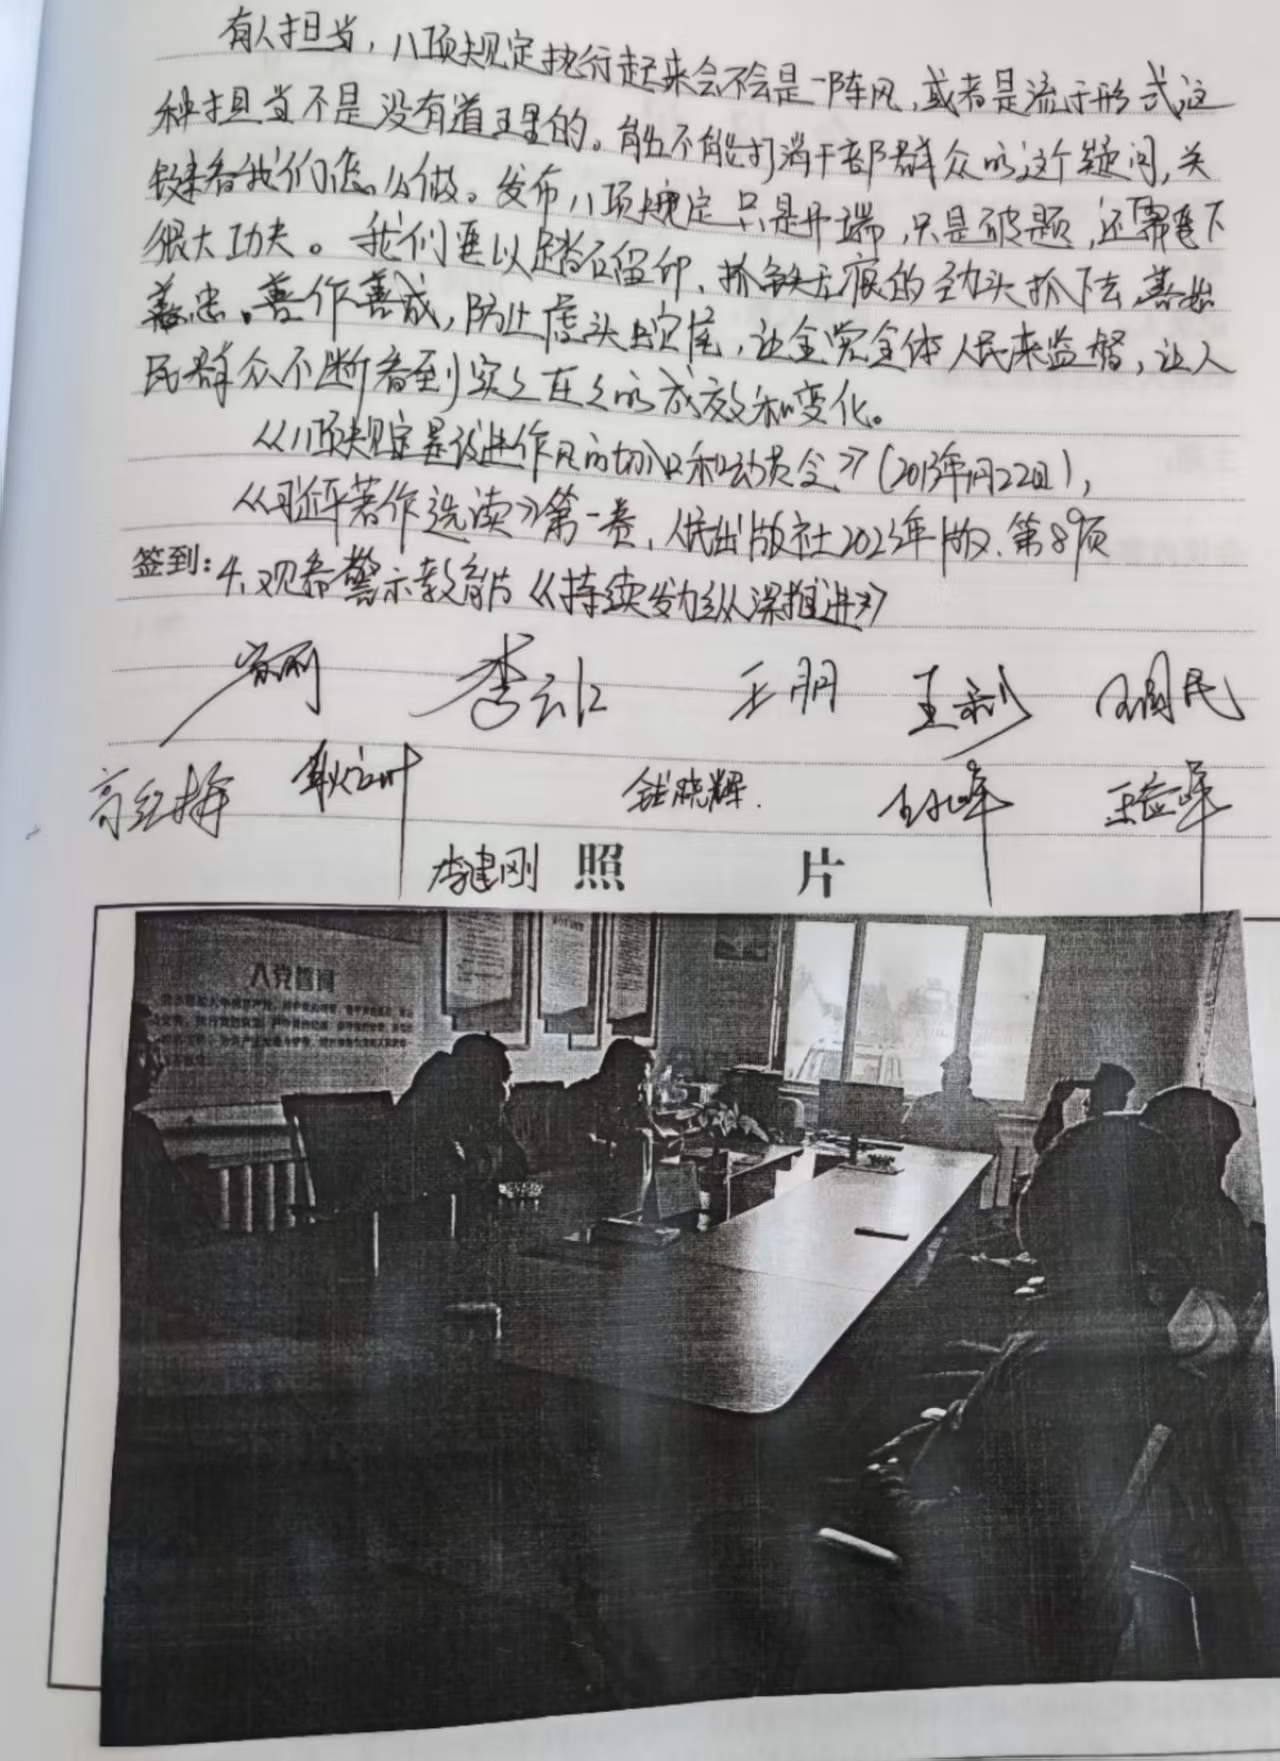 有人担当，八项规定执行起来会不会是一阵风，或者是流于形式，这
种担当不是没有道理的。能不能打消干部群众的这个疑问，关
键看我们怎么做。发布八项规定只是开端，只是破题，还需要下
很大功夫。我们要以踏石留印、抓铁无痕的劲头抓下去，善始
善忠，善作善成，防止虎头蛇尾，让全党全体人民来监督，让人
民群众不断看到实々在々的成效和变化。
《八项规定是改进作风的切入口和动员令》（2013年1月22日），
《习近平著作选读》第一卷，人民出版社2023年版，第89页
签到：4、观看警示教育片《持续发力纵深推进》
王朋 王利 王国民
高红梅 钱晓辉
李建刚 照 片
入党誓词